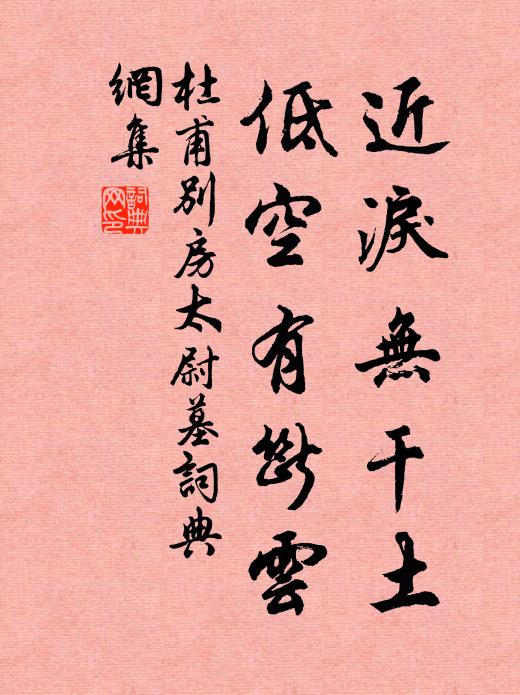 近淚無干土
低空有斷雲
杜甫別房太尉墓詞典
網集
詞典
网印